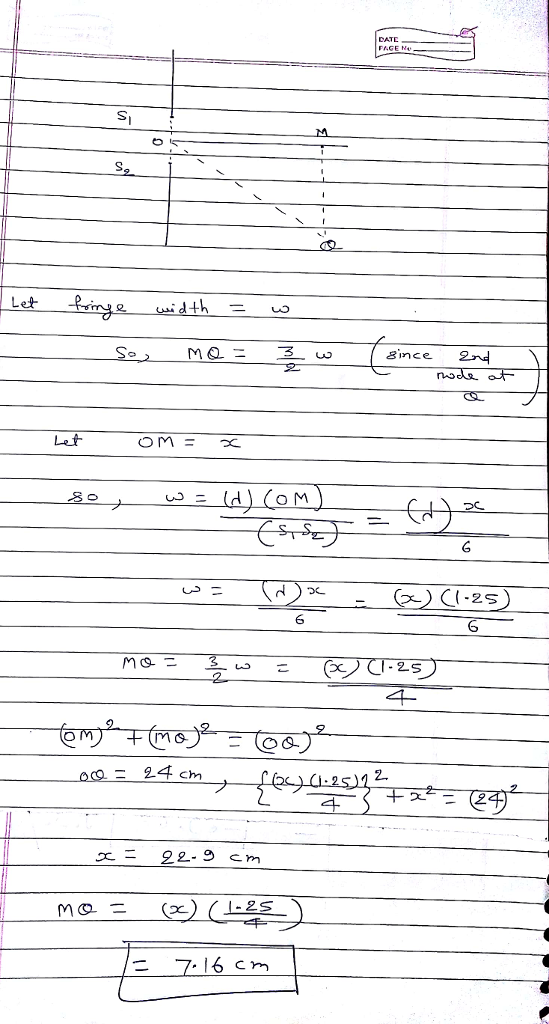 DATE
PAGE No.
S₁
M
O
S₂
Q
Let fringe width = w
So, MQ = 3/2 w (since 2nd node at Q)
Let OM = x
so, w = (λ)(OM)/(S₁S₂) = (λ)x/6
w = (λ)x/6 = (x)(1.25)/6
MQ = 3/2 w = (x)(1.25)/4
(OM)² + (MQ)² = (OQ)²
OQ = 24 cm, {(x)(1.25)/4}² + x² = (24)²
x = 22.9 cm
MQ = (x)(1.25/4)
= 7.16 cm